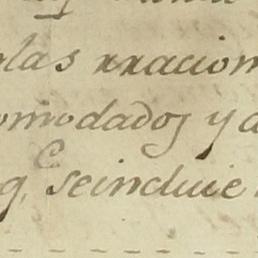 las rracion
omodados y a
q.e seincluie